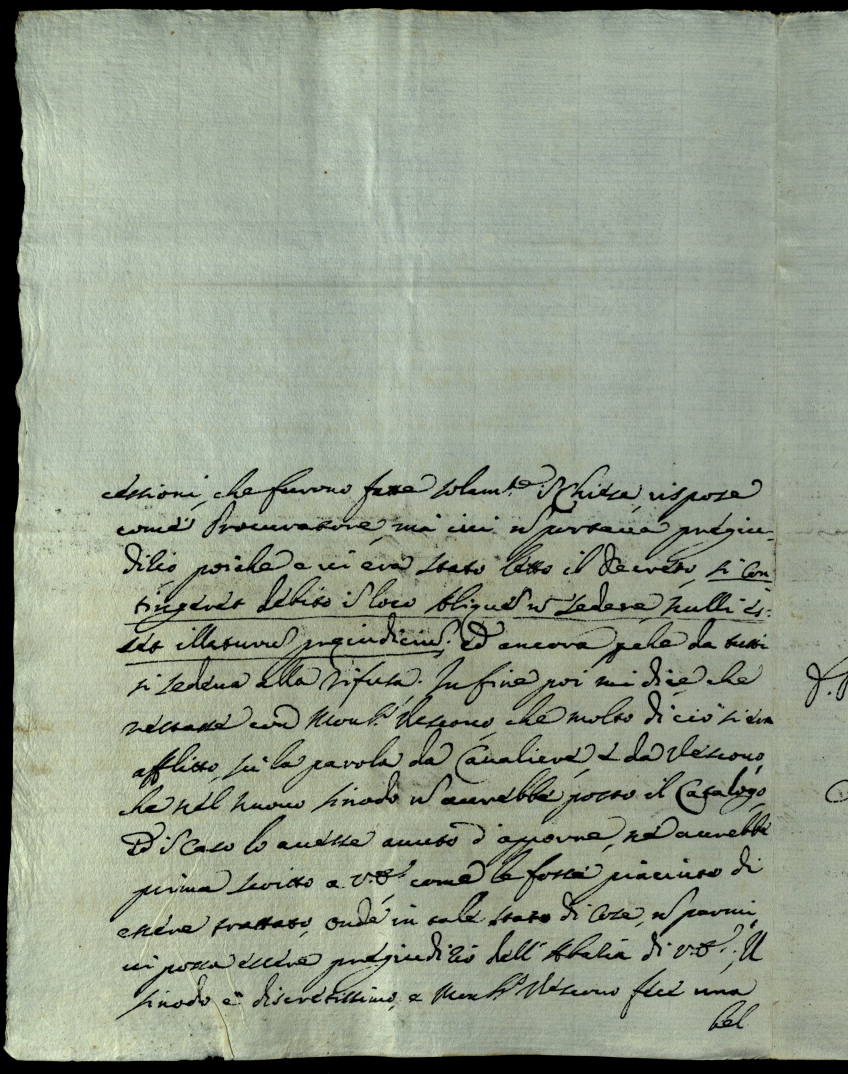 cessioni, che furono fatte solam.te ī Chiesa, rispose
come Procuratore, ma ciò ñ portava pregiu-
dizio, poiche e vi era stato letto il decreto, si con-
tingeret debito ī loco aliquē ñ sedere, nulli es-
set illaturū prejudiciū. Ed ancora pche da tutti
si sedeva alla rifusa. In fine poi mi dice che
restasse con Mons.r Vescovo, che molto di ciò si era
afflitto, sù la parola da Cavaliere, e da Vescovo,
che nel nuovo sinodo ñ avrebbe posto il Catalogo,
Ed ī Caso lo avesse avuto d'apporre, ne avrebbe
prima scritto a V.S. come le fosse piaciuto di
essere trattato, onde in tale stato di cose, ñ parmi
vi possa essere pregiudizio dell'Abbatia di V.S. Il
sinodo è discretissimo, e Mons.r Vescovo fece una
bel